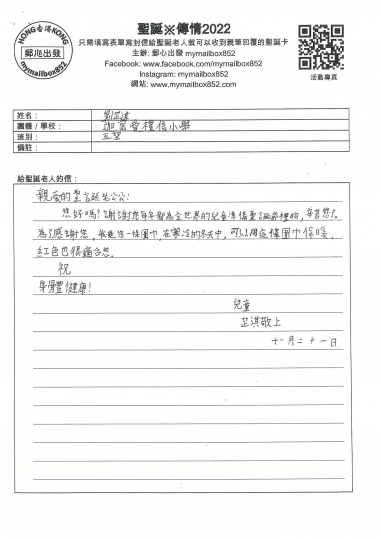 HONG香港KONG
郵心出發
mymailbox852
聖誕※傳情2022
只需填寫表單寫封信給聖誕老人就可以收到親筆回覆的聖誕卡
主辦: 郵心出發 mymailbox852
Facebook: www.facebook.com/mymailbox852
Instagram: mymailbox852
網站: www.mymailbox852.com
活動專頁
姓名：
劉芷淇
團體 / 學校：
小學
班別：
五望
備註：
給聖誕老人的信：
親愛的聖誕老公公:
您好嗎?謝謝您每年都為全世界的兒童準備聖誕節禮物,辛苦您了。
為了感謝您,我送您一條圍巾,在寒冷的冬天中,可以用這條圍巾保暖,
紅色也很適合您。
祝
身體健康!
兒童
芷淇敬上
十一月二十一日